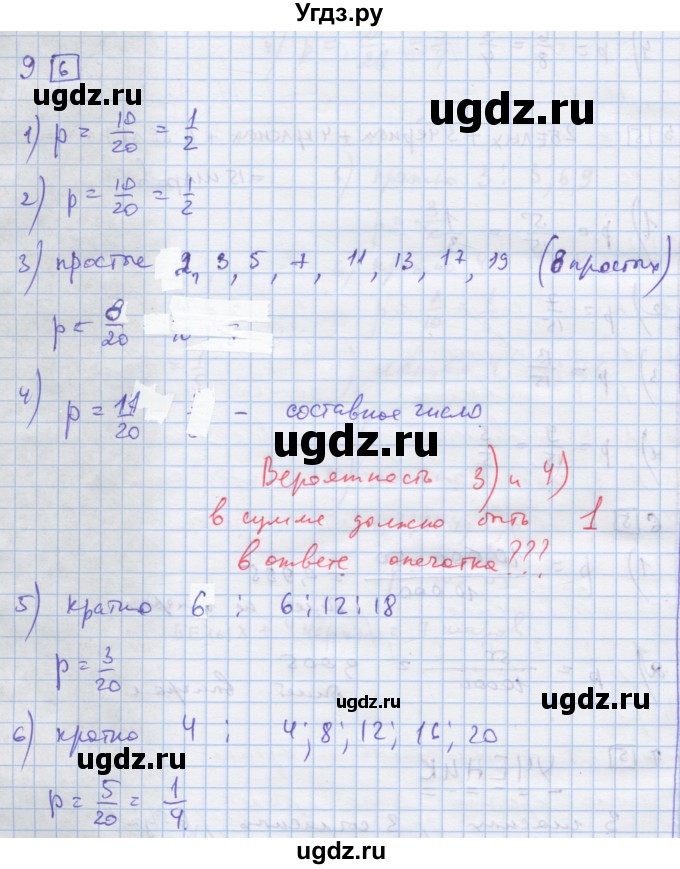 Угдз.ру
9 6
ugdz.ru
1) p = 10/20 = 1/2
2) p = 10/20 = 1/2
ugdz.ru
3) простые 2, 3, 5, 7, 11, 13, 17, 19 (8 простых)
ugdz.ru ugdz.ru
p = 8/20
4) p = 11/20 – составное число
ugdz.ru
Вероятность 3) и 4)
в сумме должно быть 1
в ответе опечатка???
ugdz.ru
5) кратно 6; 6; 12; 18
p = 3/20
ugdz.ru ugdz.ru
6) кратно 4; 4; 8; 12; 16; 20
ugdz.ru
p = 5/20 = 1/4
ugdz.ru
ugdz.ru